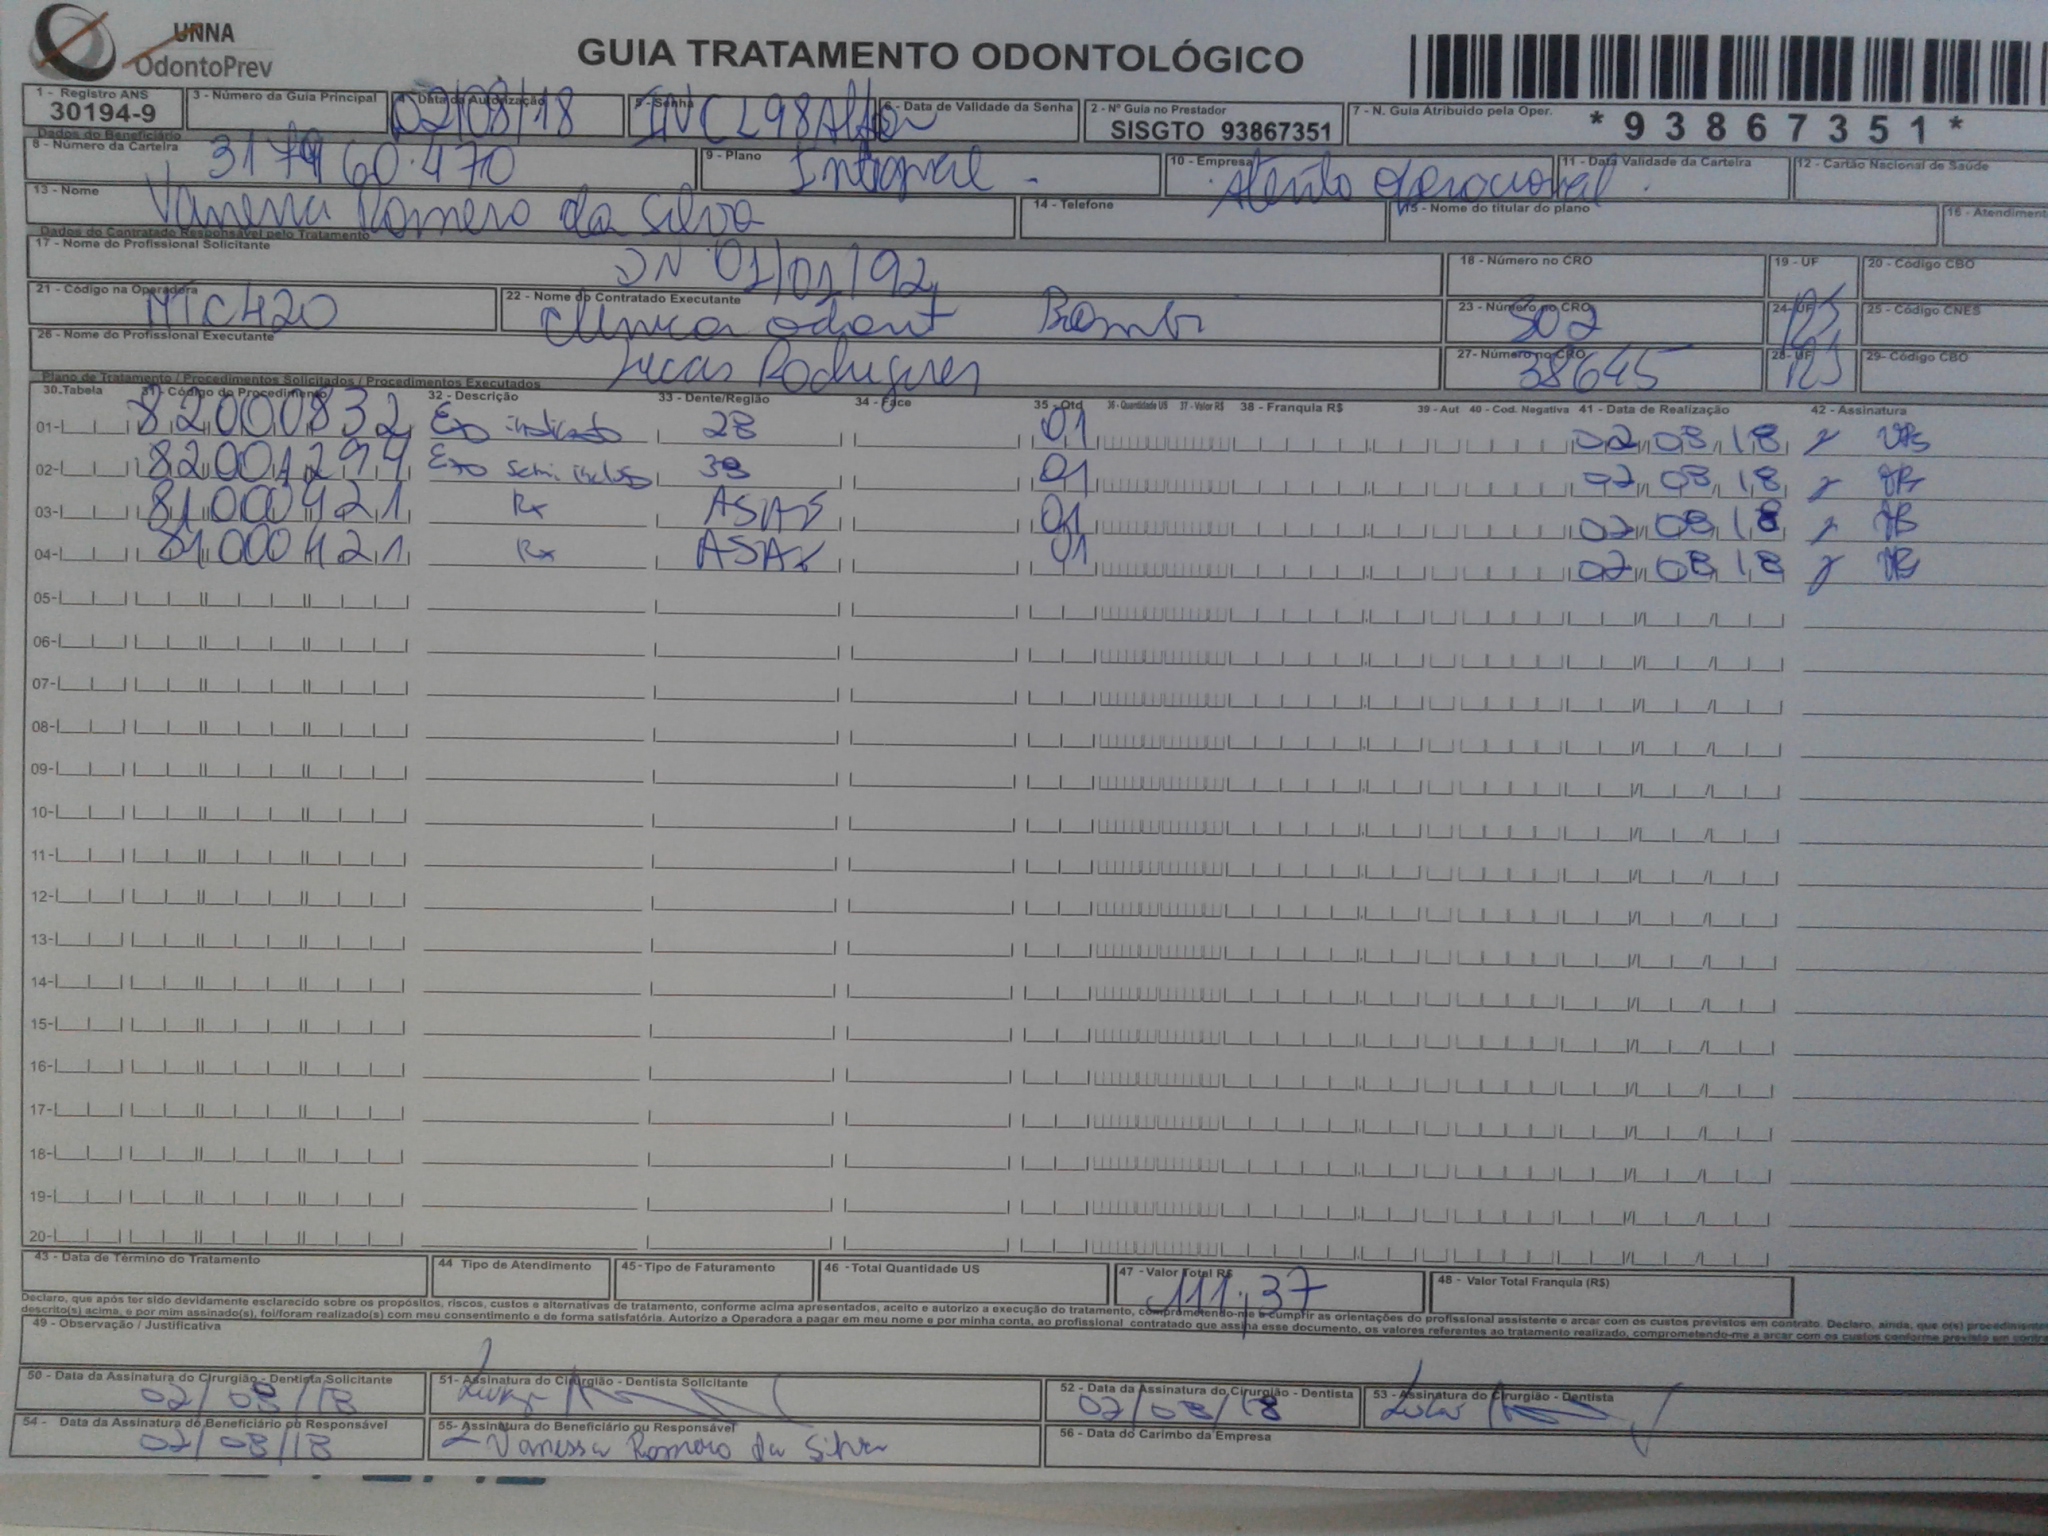 UNNA
OdontoPrev
GUIA TRATAMENTO ODONTOLÓGICO
* 9 3 8 6 7 3 5 1 *
1 - Registro ANS
30194-9
3 - Número da Guia Principal
4 - Data da Autorização
02/08/18
5 - Senha
6 - Data de Validade da Senha
2 - Nº Guia no Prestador
SISGTO 93867351
7 - Guia N. Guia Atribuído pela Oper.
Dados do Beneficiário
8 - Número da Carteira
9 - Plano
Integral
10 - Empresa
11 - Data Validade da Carteira
12 - Cartão Nacional de Saúde
13 - Nome
Vanessa Romero da Silva
14 - Telefone
15 - Nome do titular do plano
16 - Atendimento
Dados do Contratado Responsável pelo Tratamento
17 - Nome do Profissional Solicitante
DN 01/01/92
18 - Número no CRO
19 - UF
20 - Código CBO
21 - Código na Operadora
22 - Nome do Contratado Executante
Clinica odont
23 - Número no CRO
302
24 - UF
RS
25 - Código CNES
26 - Nome do Profissional Executante
Lucas Rodrigues
27 - Número no CRO
28 - UF
RS
29 - Código CBO
Plano de Tratamento / Procedimentos Solicitados / Procedimentos Executados
30-Tabela 31 - Código do Procedimento 32 - Descrição 33 - Dente/Região 34 - Face 35 - Qtd 36 - Quantidade US 37 - Valor R$ 38 - Franquia R$ 39 - Aut 40 - Cod. Negativa 41 - Data de Realização 42 - Assinatura
01- 82000832 Exo 28 01 02 08 18
02- 82001294 Exo semi incluso 38 01 02 08 18
03- 81000421 Rx 01 02 08 18
04- 81000421 Rx 01 02 08 18
05-
06-
07-
08-
09-
10-
11-
12-
13-
14-
15-
16-
17-
18-
19-
20-
43 - Data de Término do Tratamento
44 Tipo de Atendimento
45-Tipo de Faturamento
46 - Total Quantidade US
47 - Valor Total R$
111,37
48 - Valor Total Franquia (R$)
Declaro, que após ter sido devidamente esclarecido sobre os propósitos, riscos, custos e alternativas de tratamento, conforme acima apresentados, aceito e autorizo a execução do tratamento, comprometendo-me a cumprir as orientações do profissional assistente e arcar com os custos previstos em contrato. Declaro, ainda, que o(s) procedimento
descrito(s) acima, e por mim assinado(s), foi/foram realizado(s) com meu consentimento e de forma satisfatória. Autorizo a Operadora a pagar em meu nome e por minha conta, ao profissional contratado que assina esse documento, os valores referentes ao tratamento realizado, comprometendo-me a arcar com os custos conforme previsto em contra
49 - Observação / Justificativa
50 - Data da Assinatura do Cirurgião - Dentista Solicitante
02/08/18
51- Assinatura do Cirurgião - Dentista Solicitante
52 - Data da Assinatura do Cirurgião - Dentista
02/08/18
53 - Assinatura do Cirurgião - Dentista
54 - Data da Assinatura do Beneficiário ou Responsável
02/08/18
55- Assinatura do Beneficiário ou Responsável
Vanessa Romero da Silva
56 - Data do Carimbo da Empresa